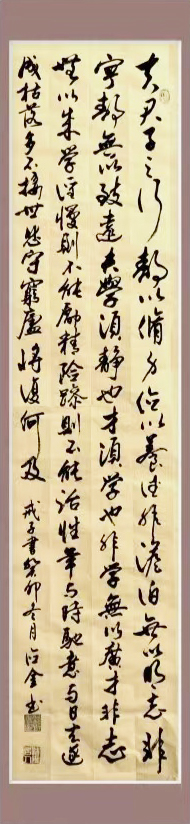 夫君子之行靜以脩身儉以養德非澹泊無以明志非
寧靜無以致遠夫學須静也才須学也非学無以廣才非志
無以成学淫慢則不能勵精險躁則不能治性年与時馳意与日去遂
成枯落多不接世悲守窮廬將復何及 戒子書癸卯冬月 金书